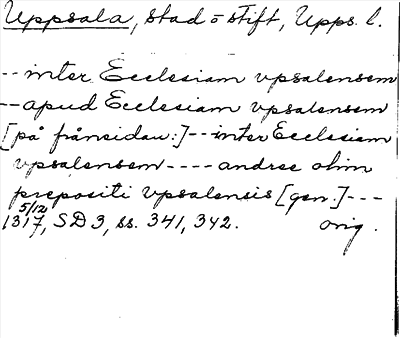 Uppsala, stad o stift, Upps. l.
-- inter Ecclesiam vpsalensem
-- apud Ecclesiam vpsalensem
[på frånsidan:] -- inter Ecclesiam
vpsalensem ---- andree olim
prepositi vpsalensis [gen.] ---
5/12
1317, SD 3, ss. 341, 342. orig.